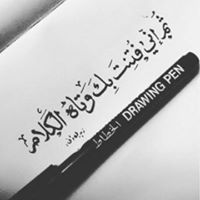 ثم إني فتنت بك وتاه الكلام
الخطاط
DRAWING PEN